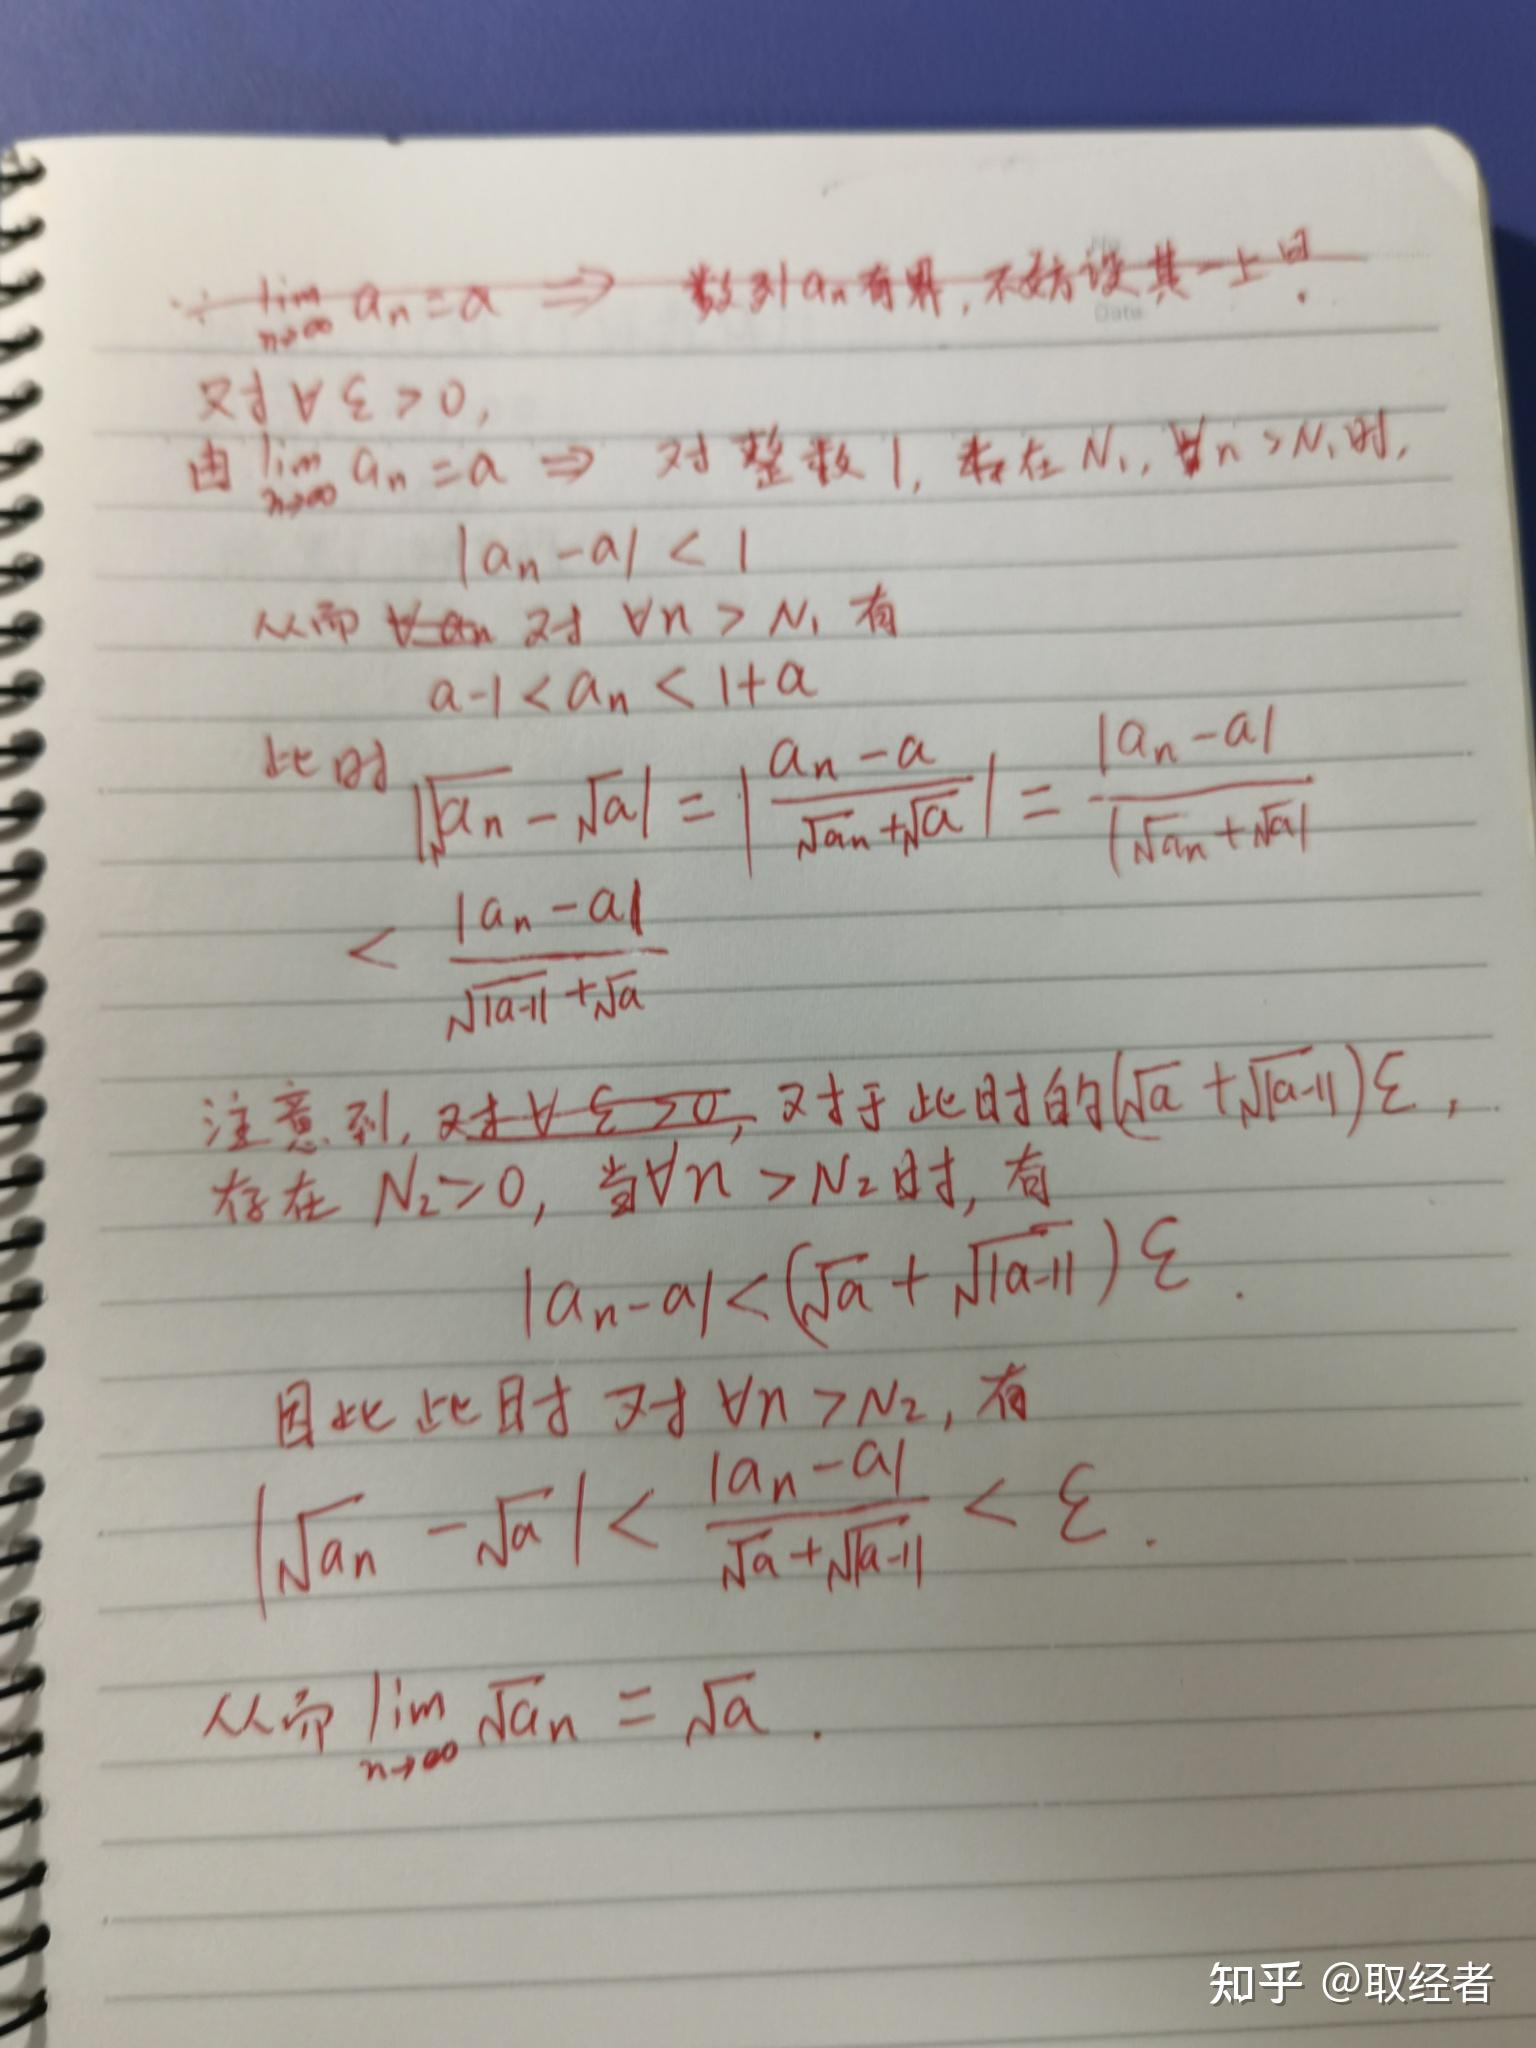 ∵ lim n→∞ an = a ⇒ 数列an有界,不妨设其一上
又对∀ε>0,
由 lim n→∞ an = a ⇒ 对整数1,存在N₁,∀n>N₁时,
|an-a|<1
从而 ∀an 对 ∀n>N₁有
a-1<an<1+a
此时 |√an-√a| = |(an-a)/(√an+√a)| = |an-a|/|√an+√a|
< |an-a|/(√|a-1|+√a)
注意到,对∀ε>0,对于此时的(√a+√|a-1|)ε,
存在N₂>0,当∀n>N₂时,有
|an-a|<(√a+√|a-1|)ε.
因此此时对∀n>N₂,有
|√an-√a|<|an-a|/(√a+√|a-1|)<ε.
从而 lim n→∞ √an = √a.
Date
知乎 @取经者